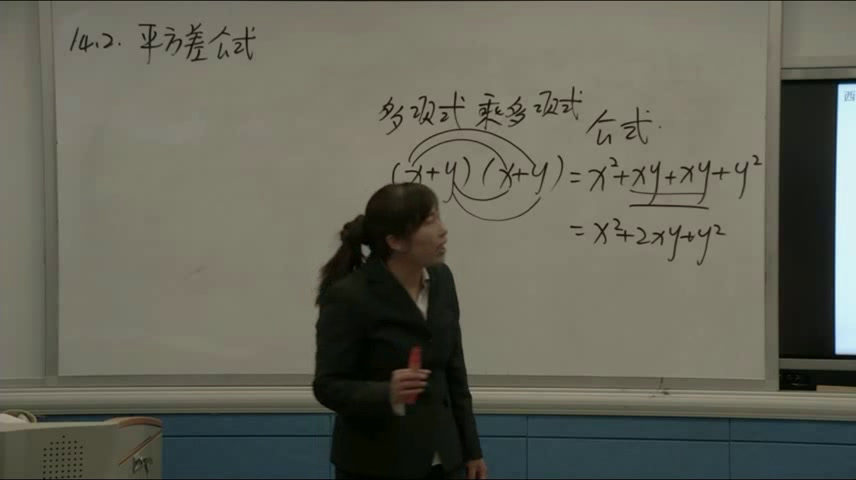 14.2. 平方差公式
多项式乘多项式 公式.
(x+y)(x+y)=x²+xy+xy+y²
=x²+2xy+y²
西